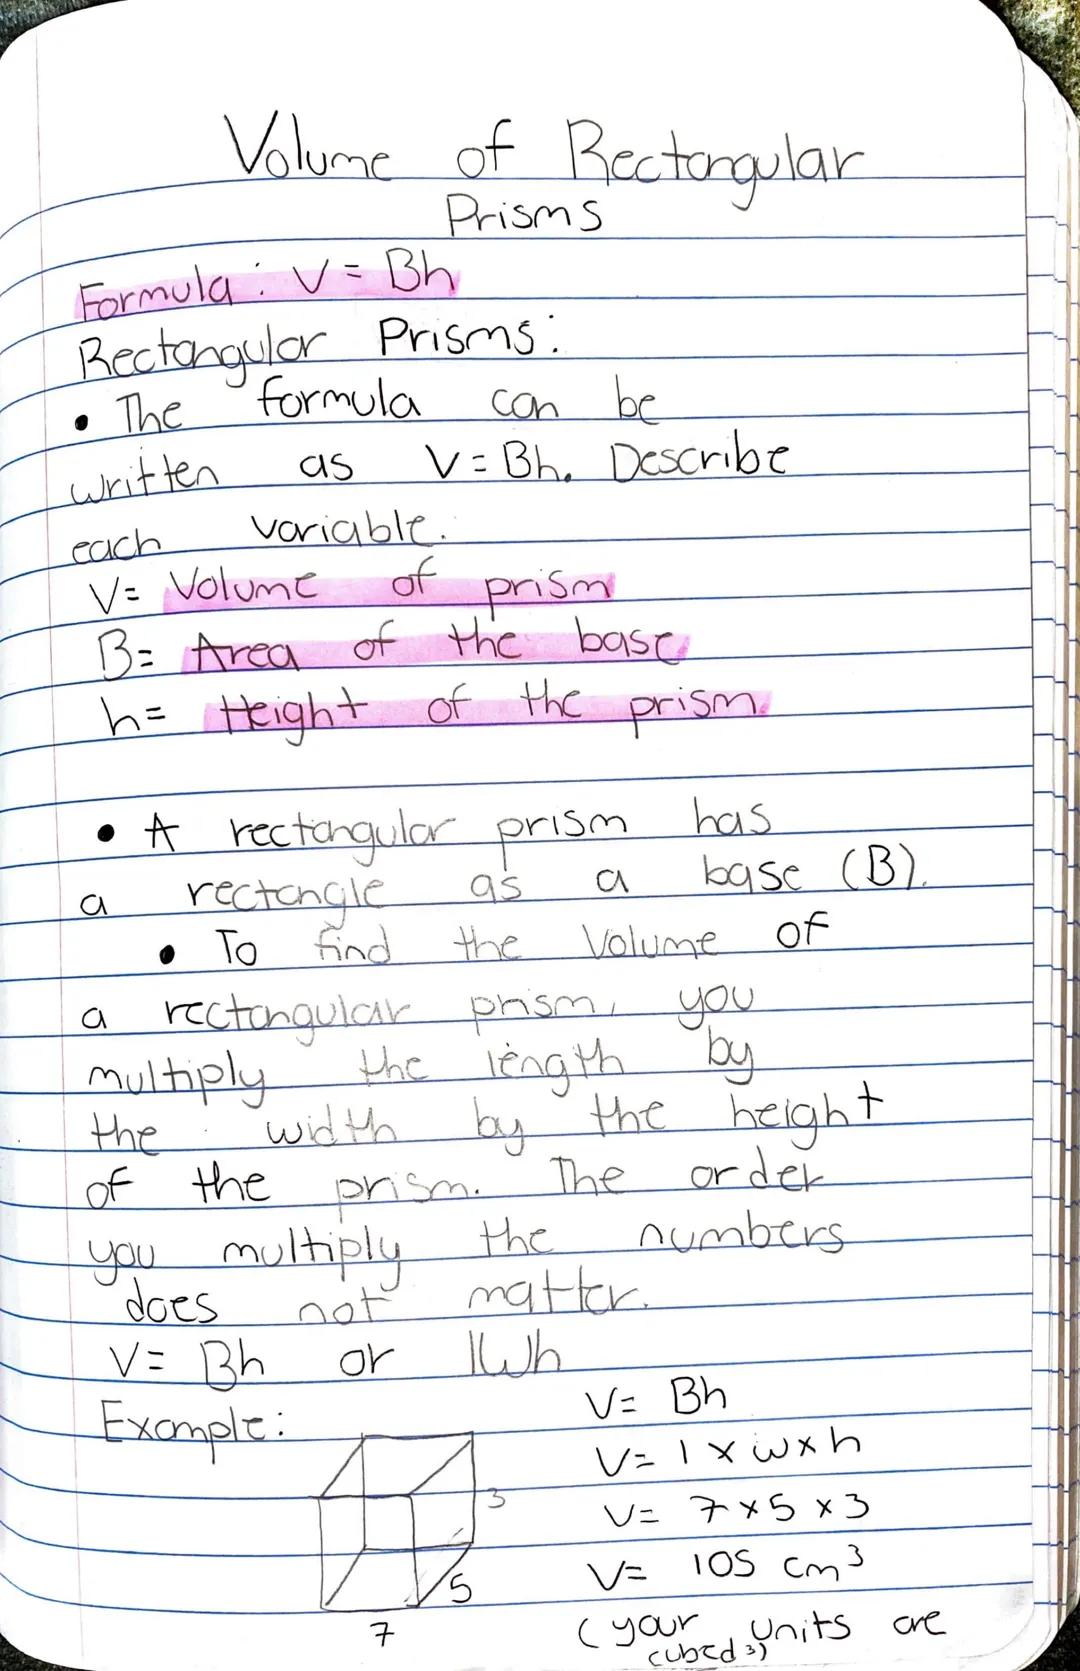 Volume of Rectangular
Prisms
Formula: V = Bh
Rectangular Prisms:
• The formula can be
written as V = Bh. Describe
each variable.
V= Volume of prism
B= Area of the base
h= Height of the prism.
• A rectangular prism has
a rectangle as a base (B).
• To find the Volume of
a rectangular prism, you
multiply the length by
the width by the height
of the prism. The order
you multiply the numbers
does not matter.
V= Bh or lwh
Example:
V= Bh
V= l x w x h
3
V= 7 x 5 x 3
V= 105 cm³
5
7
(your units are
cubed ³)